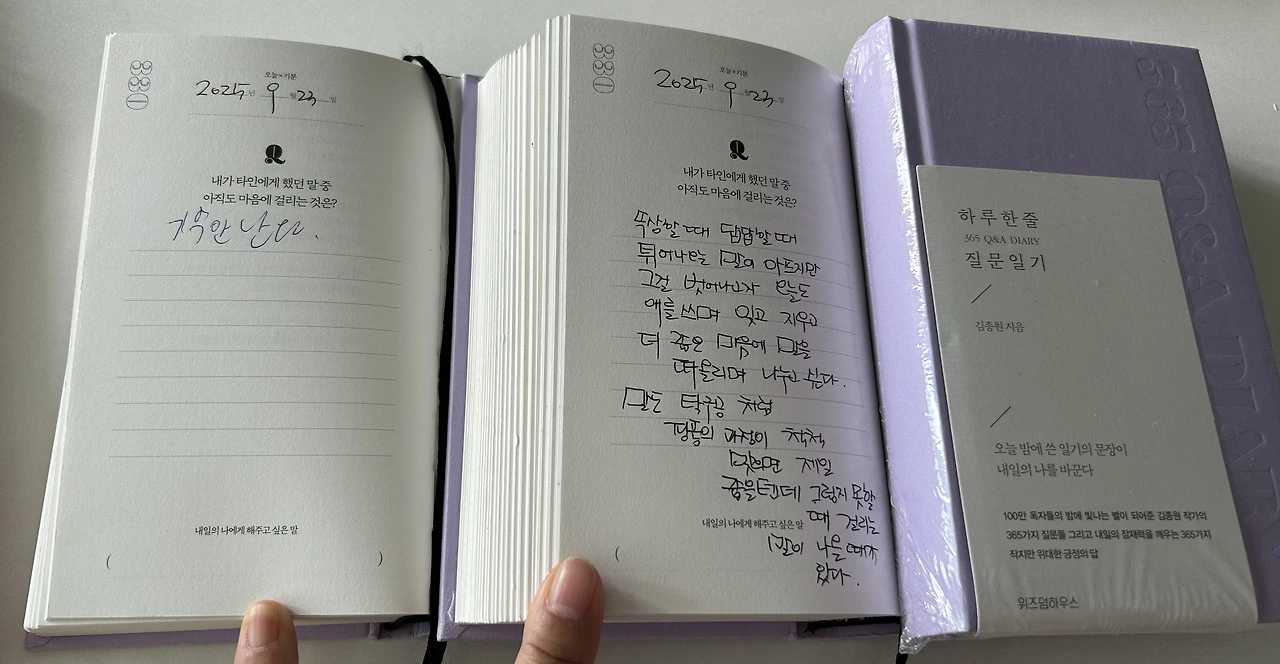 365
오늘×기분
2025년 9월 23일
Q
내가 타인에게 했던 말 중
아직도 마음에 걸리는 것은?
기억안난다.
내일의 나에게 해주고 싶은 말
( )
오늘×기분
2025년 9월 23일
Q
내가 타인에게 했던 말 중
아직도 마음에 걸리는 것은?
속상할 때 답답할 때
튀어나오는 말이 아프지만
그걸 벗어나고자 오늘도
애를 쓰며 잊고 지우고
더 좋은 마음에 말을
떠올리며 나누고 싶다.
말도 탁구공 처럼
핑퐁의 과정이 척척
맞으면 제일
좋을텐데 그렇지 못할
때 걸리는
말이 나올 때가
있다.
내일의 나에게 해주고 싶은 말
(
365 Q&A DIARY
하루한줄
365 Q&A DIARY
질문일기
김종원 지음
오늘 밤에 쓴 일기의 문장이
내일의 나를 바꾼다
100만 독자들의 밤에 빛나는 별이 되어준 김종원 작가의
365가지 질문들 그리고 내일의 잠재력을 깨우는 365가지
작지만 위대한 긍정의 답
위즈덤하우스